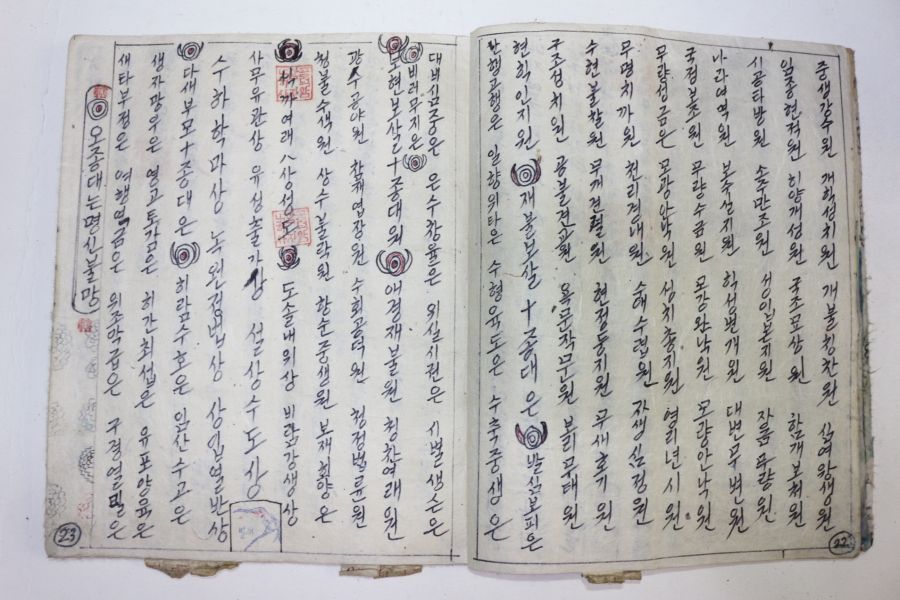 중생강수원 개학성취원 개불칭찬원 십여왕생원
임종현전원 히양개성원 국조묘상원 함개보처원
시공타방원 소수만조원 성입본지원 자름무량원
나라여역원 보득신지원 학성변개원 대변무변원
국정보조원 무량수금원 모강완낙원 모량안낙원
무량성금은 모광안낙원 성치총지원 영리년시원
무명치까원 천리경내원 자생심정원
수현불찰원 현정등지원 무새호기원
구조성치원 공불견고원 욕문작문원 보리무태원
현학인지원 재불보살 十종대은 발심보피은
난행고행은 일향위타은 수형육도은 수축중생은
22
대비심중은 은수창율은 위실시권은 시벌생슨은
비러무지은
보현보살 十종대원 애경재불원 칭찬여래원
광수공야원 참채엽장원 수히공덕원 청정법륜원
청불수색원 상수불학원 항순중생원 본재회향은
석까여래 八사성도 도솔내의상 비람강생상
사무유관상 유성출가상 설상수도상
수하학마상 녹원전법상 상임열반상
다새부모 十종대은 히람수호은 임산수고은
생자망우은 연고토감은 히간히섭은 유포양육은
새타부정은 여행역금은 위조악급은 구경열밀은
오종대는명신불망
23